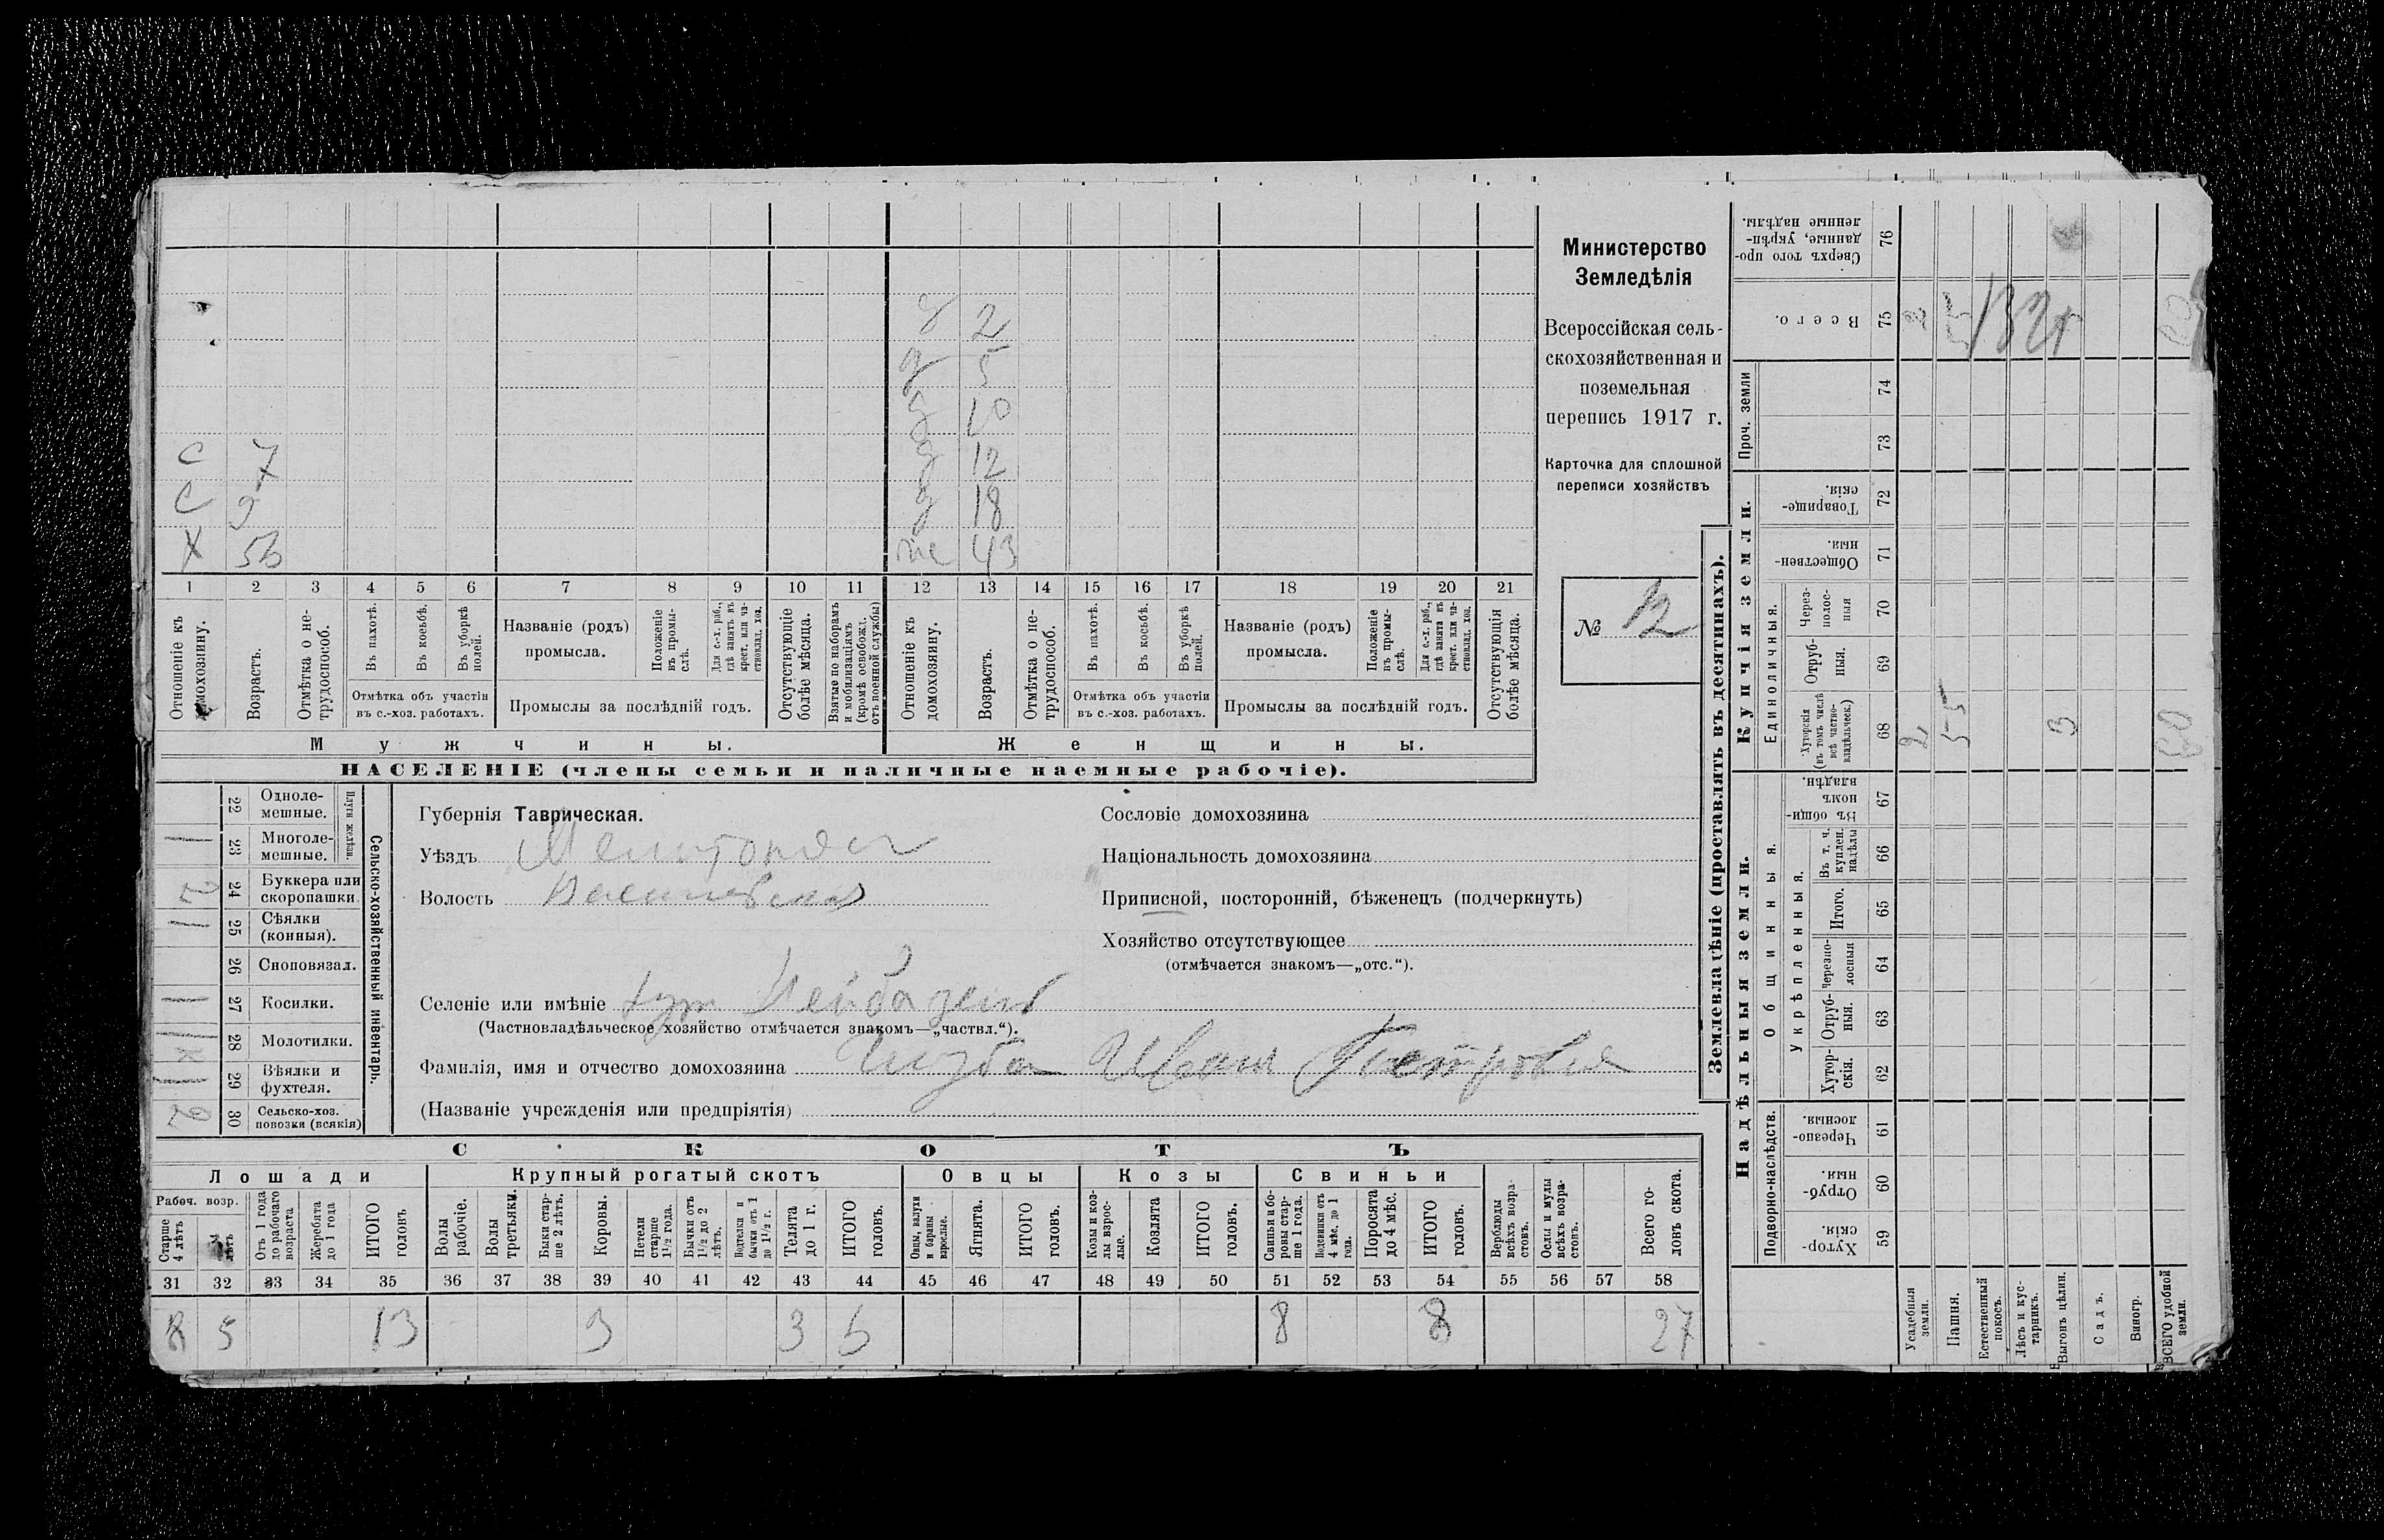 Министерство
Земледѣлія
Всероссійская сель-
скохозяйственная и
поземельная
перепись 1917 г.
Карточка для сплошной
переписи хозяйствъ
№ 12
д 2
д 5
д 10
С 7 д 12
С 9 д 18
Х ж 43
1 2 3 4 5 6 7 8 9 10 11 12 13 14 15 16 17 18 19 20 21
Отношеніе къ домохозяину.
Возрастъ.
Отмѣтка о не-
трудоспособ.
Въ пахотѣ.
Въ косьбѣ.
Въ уборкѣ
полей.
Отмѣтка объ участіи
въ с.-хоз. работахъ.
Названіе (родъ)
промысла.
Положеніе
въ промы-
слѣ.
Для с.-х. раб.,
гдѣ занятъ въ
крест. или ча-
стновлад. хоз.
Промыслы за послѣдній годъ.
Отсутствующіе
болѣе мѣсяца.
Взятые по наборамъ
и мобилизаціямъ
(кромѣ освобожд.
отъ военной службы)
Отношеніе къ
домохозяину.
Возрастъ.
Отмѣтка о не-
трудоспособ.
Въ пахотѣ.
Въ косьбѣ.
Въ уборкѣ
полей.
Отмѣтка объ участіи
въ с.-хоз. работахъ.
Названіе (родъ)
промысла.
Положеніе
въ промы-
слѣ.
Для с.-х. раб.,
гдѣ занята въ
крест. или ча-
стновлад. хоз.
Промыслы за послѣдній годъ.
Отсутствующія
болѣе мѣсяца.
Мужчины.
Женщины.
НАСЕЛЕНІЕ (члены семьи и наличные наемные рабочіе).
22 Одноле-
мешные.
23 Многоле-
мешные.
Плуги желѣзн.
24 Буккера или
скоропашки
25 Сѣялки
(конныя).
26 Сноповязал.
27 Косилки.
28 Молотилки.
29 Вѣялки и
фухтеля.
30 Сельско-хоз.
повозки (всякія)
Сельско-хозяйственный инвентарь.
Губернія Таврическая.
Уѣздъ
Волость
Селеніе или имѣніе хут
(Частновладѣльческое хозяйство отмѣчается знакомъ—„частвл.“).
Фамилія, имя и отчество домохозяина Иванъ Петровъ
(Названіе учрежденія или предпріятія)
Сословіе домохозяина
Національность домохозяина
Приписной, посторонній, бѣженецъ (подчеркнуть)
Хозяйство отсутствующее
(отмѣчается знакомъ—„отс.“).
СКОТЪ
Лошади
Крупный рогатый скотъ
Овцы
Козы
Свиньи
Рабоч. возр.
Старше
4 лѣтъ
лѣтъ
Отъ 1 года
до рабочаго
возраста
Жеребята
до 1 года
ИТОГО
головъ
Волы
рабочіе.
Волы
третьяки.
Быки стар-
ше 2 лѣтъ.
Коровы.
Нетели
старше
1½ года.
Бычки отъ
1½ до 2
лѣтъ.
Подтелки и
бычки отъ 1
до 1½ г.
Телята
до 1 г.
ИТОГО
головъ.
Овцы, валухи
и бараны
взрослые.
Ягнята.
ИТОГО
головъ.
Козы и коз-
лы взрос-
лые.
Козлята
ИТОГО
головъ.
Свиньи и бо-
ровы стар-
ше 1 года.
Подсвинки отъ
4 мѣс. до 1
года.
Поросята
до 4 мѣс.
ИТОГО
головъ.
Верблюды
всѣхъ возра-
стовъ.
Ослы и мулы
всѣхъ возра-
стовъ.
Всего го-
ловъ скота.
31 32 33 34 35 36 37 38 39 40 41 42 43 44 45 46 47 48 49 50 51 52 53 54 55 56 57 58
8 5 13 3 3 6 8 8 27
Землевладѣніе (проставлять въ десятинахъ).
Купчія земли.
Надѣльныя земли.
Сверхъ того про-
данные, укрѣп-
ленные надѣлы. 76
Всего. 75 2
Проч. земли
74
73
Товарище-
скія. 72
Обществен-
ныя. 71
Единоличныя.
Через-
полос-
ныя 70
Отруб-
ныя. 69
Хуторскія
(въ томъ числѣ
всѣ частно-
владѣльческ.) 68 2 55 3 60
Общинныя.
Въ общи-
номъ
владѣн. 67
Укрѣпленныя.
Въ т. ч.
куплен.
надѣлы 66
Итого. 65
Черезпо-
лосныя 64
Отруб-
ныя. 63
Хутор-
скія. 62
Подворно-наслѣдств.
Черезпо-
лосныя. 61
Отруб-
ныя. 60
Хутор-
скія. 59
Усадебныя
земли.
Пашня.
Естественный
покосъ.
Лѣсъ и кус-
тарникъ.
Выгонъ цѣлин.
Садъ.
Виногр.
ВСЕГО удобной
земли.